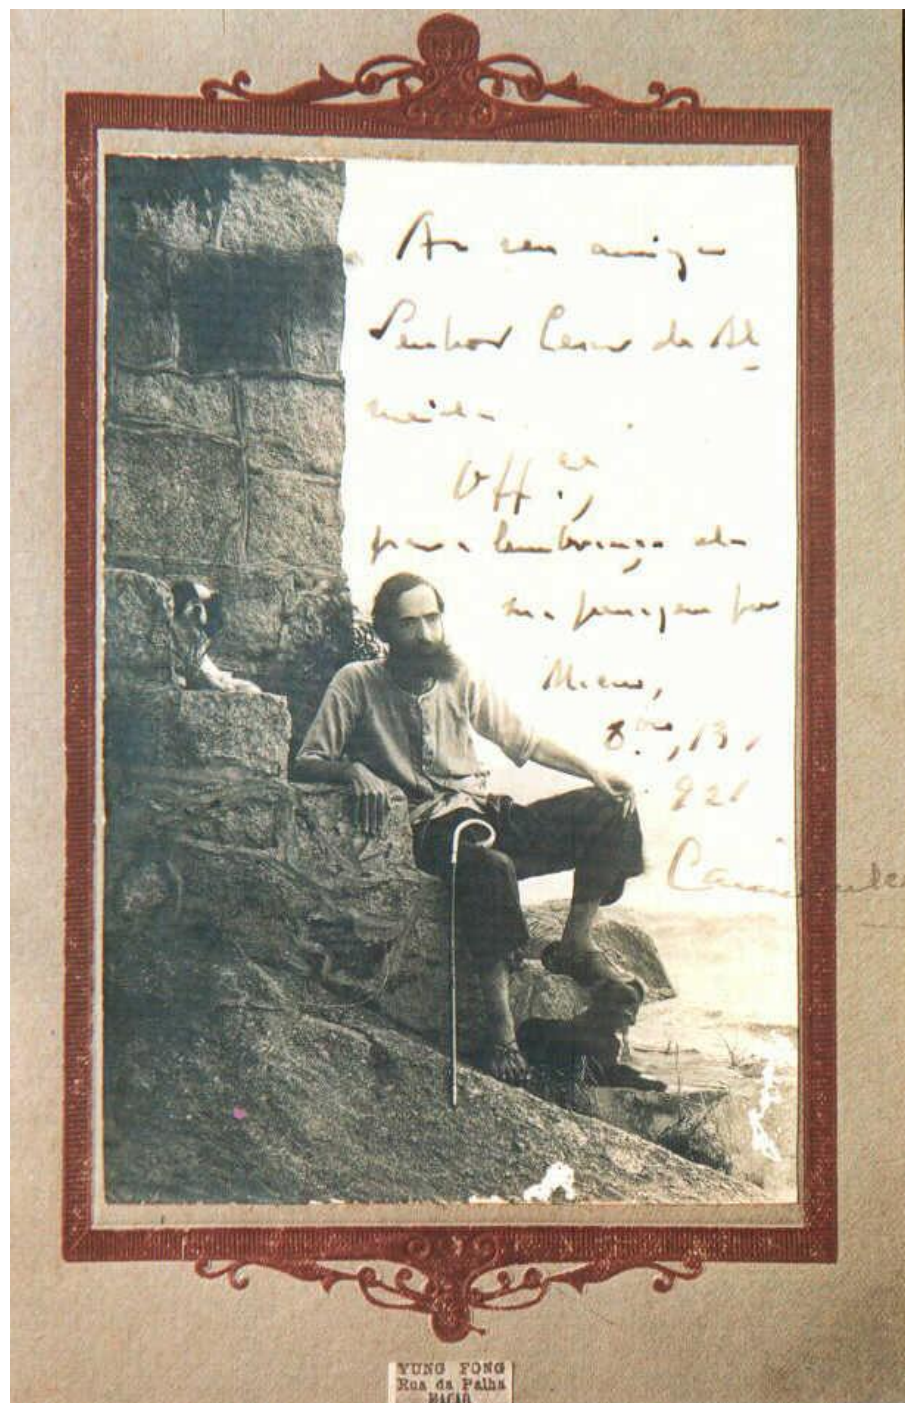 Ao seu amigo
Senhor Cesar de Al-
meida
Off.ce,
para lembrança da
sua passagem por
Macau,
8.bro, 13,
921
Camillo
YUNG FONG
Rua da Palha
MACAU